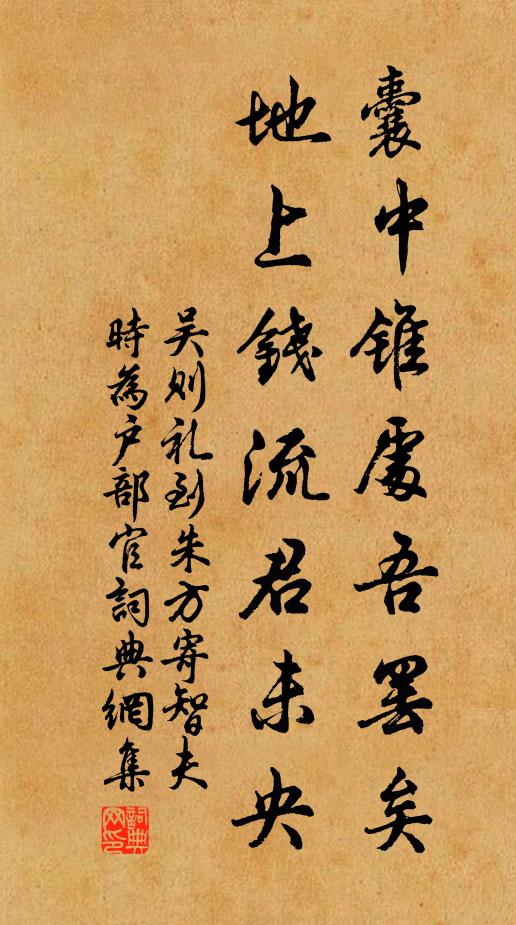 囊中錐處吾罢矣
地上錢流君未央
吴则礼到朱方寄智夫
時為户部官詞典網集
詞典网印